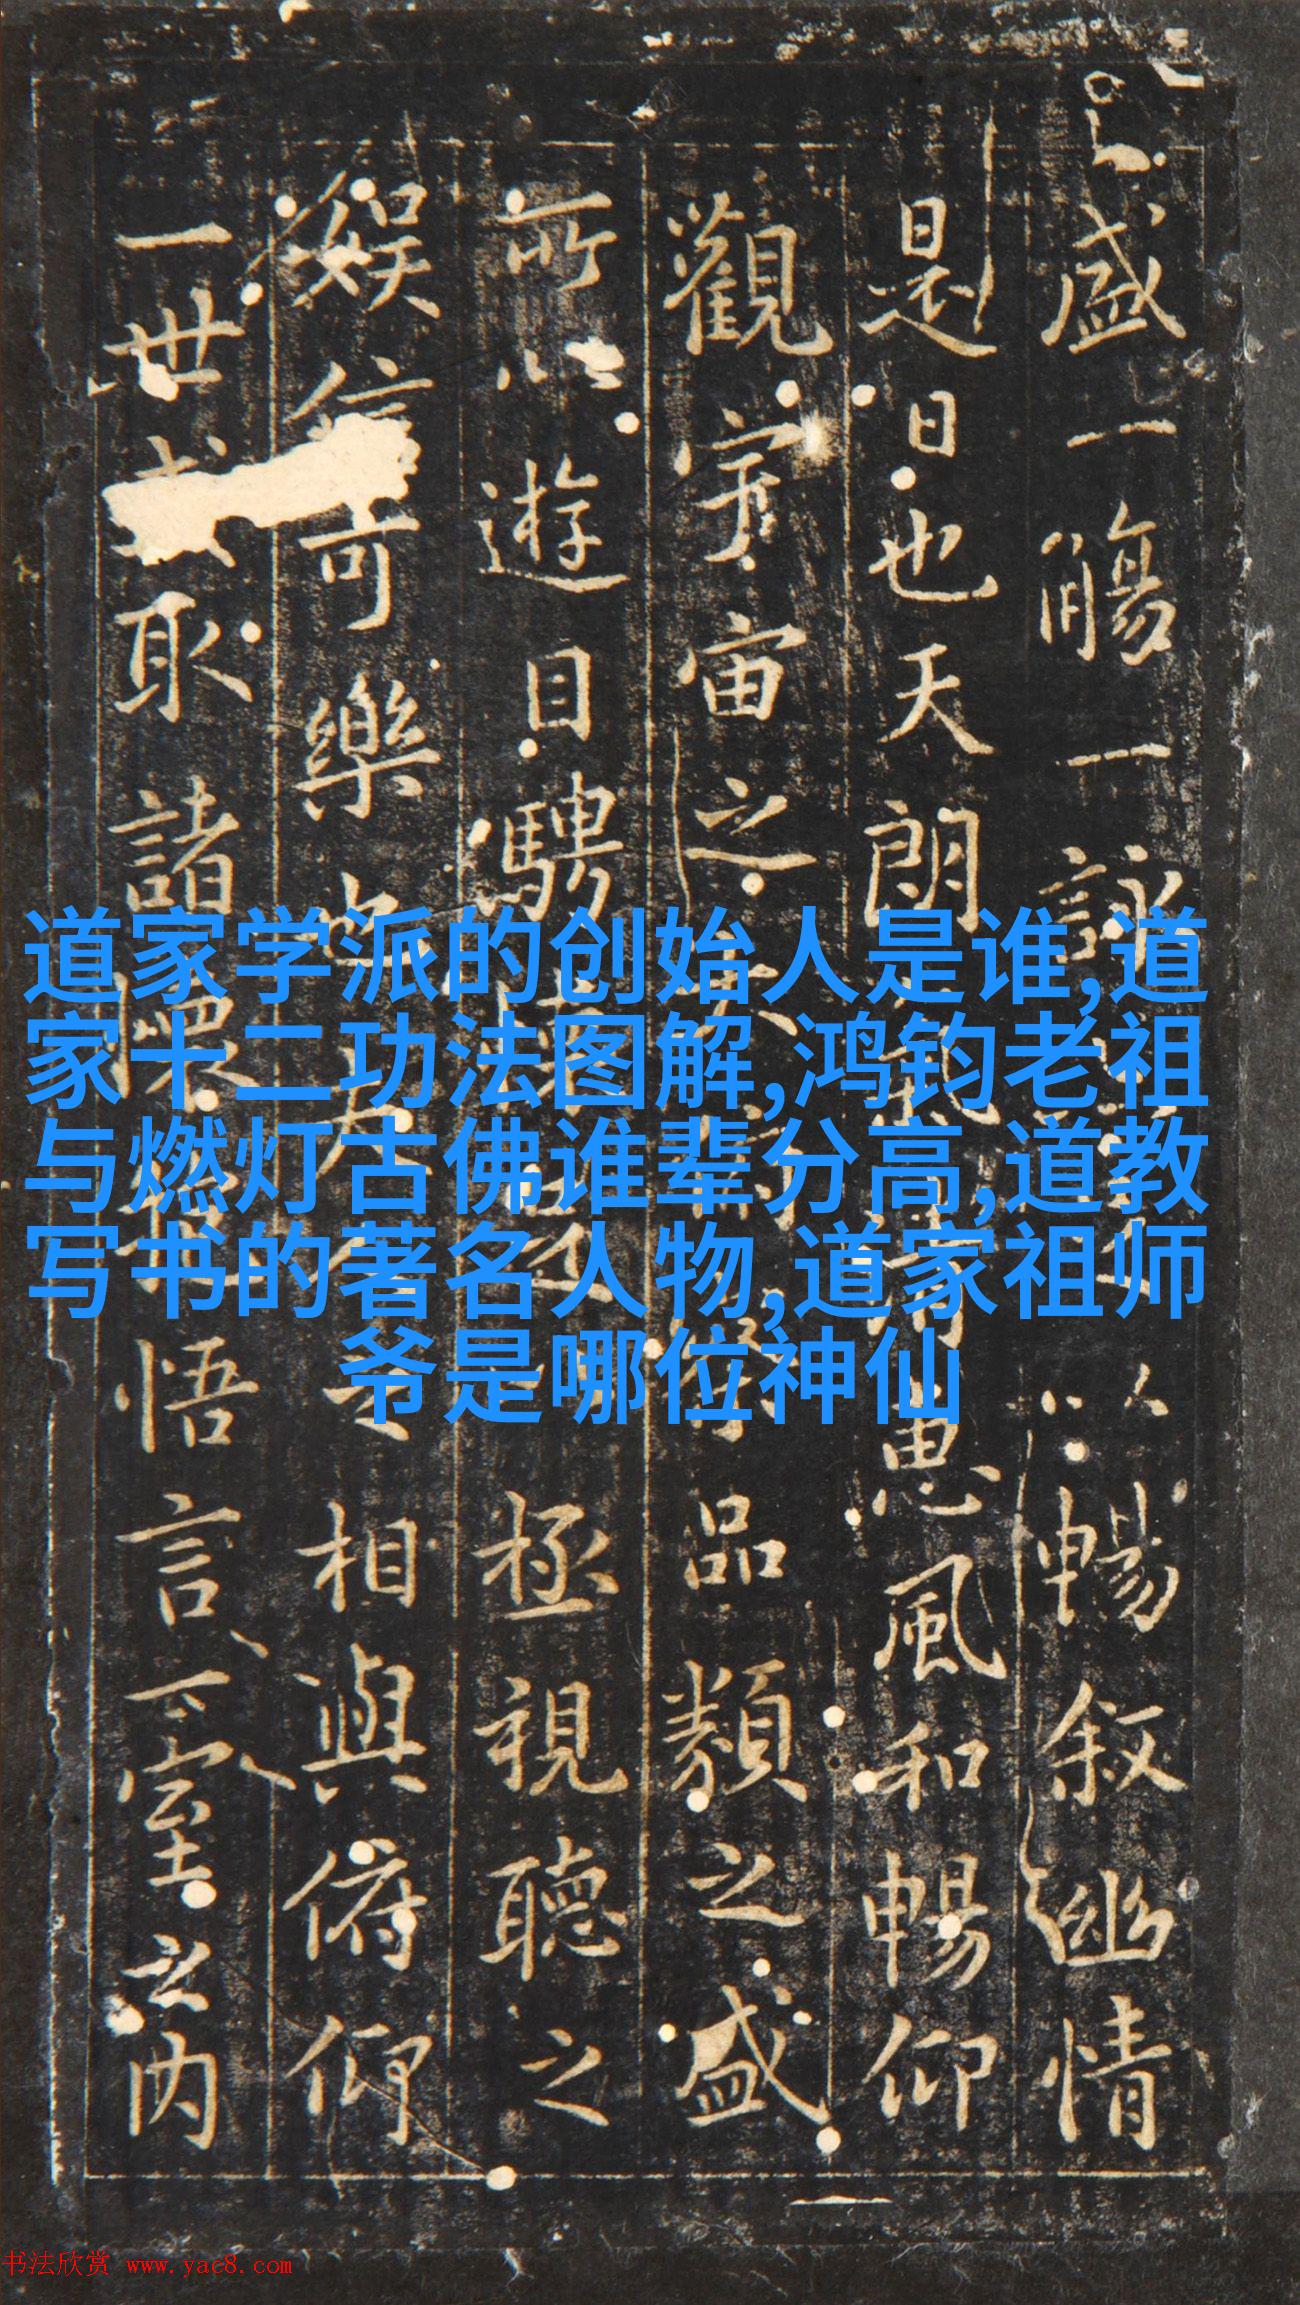 盛一觴一詠以暢叙幽情
是日也天朗氣清惠風和暢仰
觀宇宙之大俯察品類之盛
所以遊目騁懷極視聽之
娱信可樂也夫人之相與俯仰
一世或取諸懷抱悟言一室之内
道家学派的创始人是谁,道
家十二功法图解,鸿钧老祖
与燃灯古佛谁辈分高,道教
写书的著名人物,道家祖师
爷是哪位神仙
书法欣赏 www.yac8.com